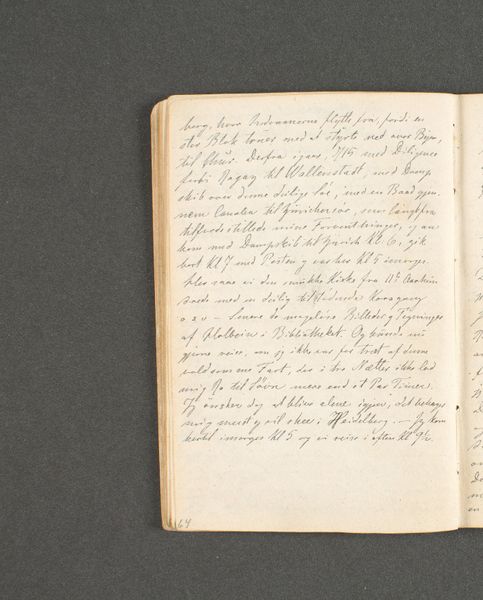 berg, hvor Indvaanerne flytte fra, fordi en
stor Blok truer med at styrte ned over Byen,
til Chur. Derfra igaar, 7/15 med Diligence
forbi Ragaz til Wallenstadt, med Damp
skib over denne deilige Sø, med en Baad gjen
nem Canalen til Zürichersøe, som langtfra
tilfredsstillede mine Forventninger, og an
kom med Dampskib til Zürich Kl. 6, gik
bort Kl 7 med Posten og var her Kl 5 imorges
Her saae vi den smukke Kirke fra 11te Aarhun
drede med en deilig tilstødende Korsgang
o s v — Senere de mageløse Billeder og Tegninger
af Holbein i Bibliotheket. Og kunde nu
gjerne reise, om jeg ikke var for træt af denne
voldsomme Fart, der i tre Nætter ikke lod
mig Ro til Søvn mere end et Par Timer.
Jeg ønsker dog at blive alene igjen, det behager
mig mest og vil skee i Heidelberg. — Jeg kom
hertil imorges Kl 5 og vi reise i aften Kl 9½.
64